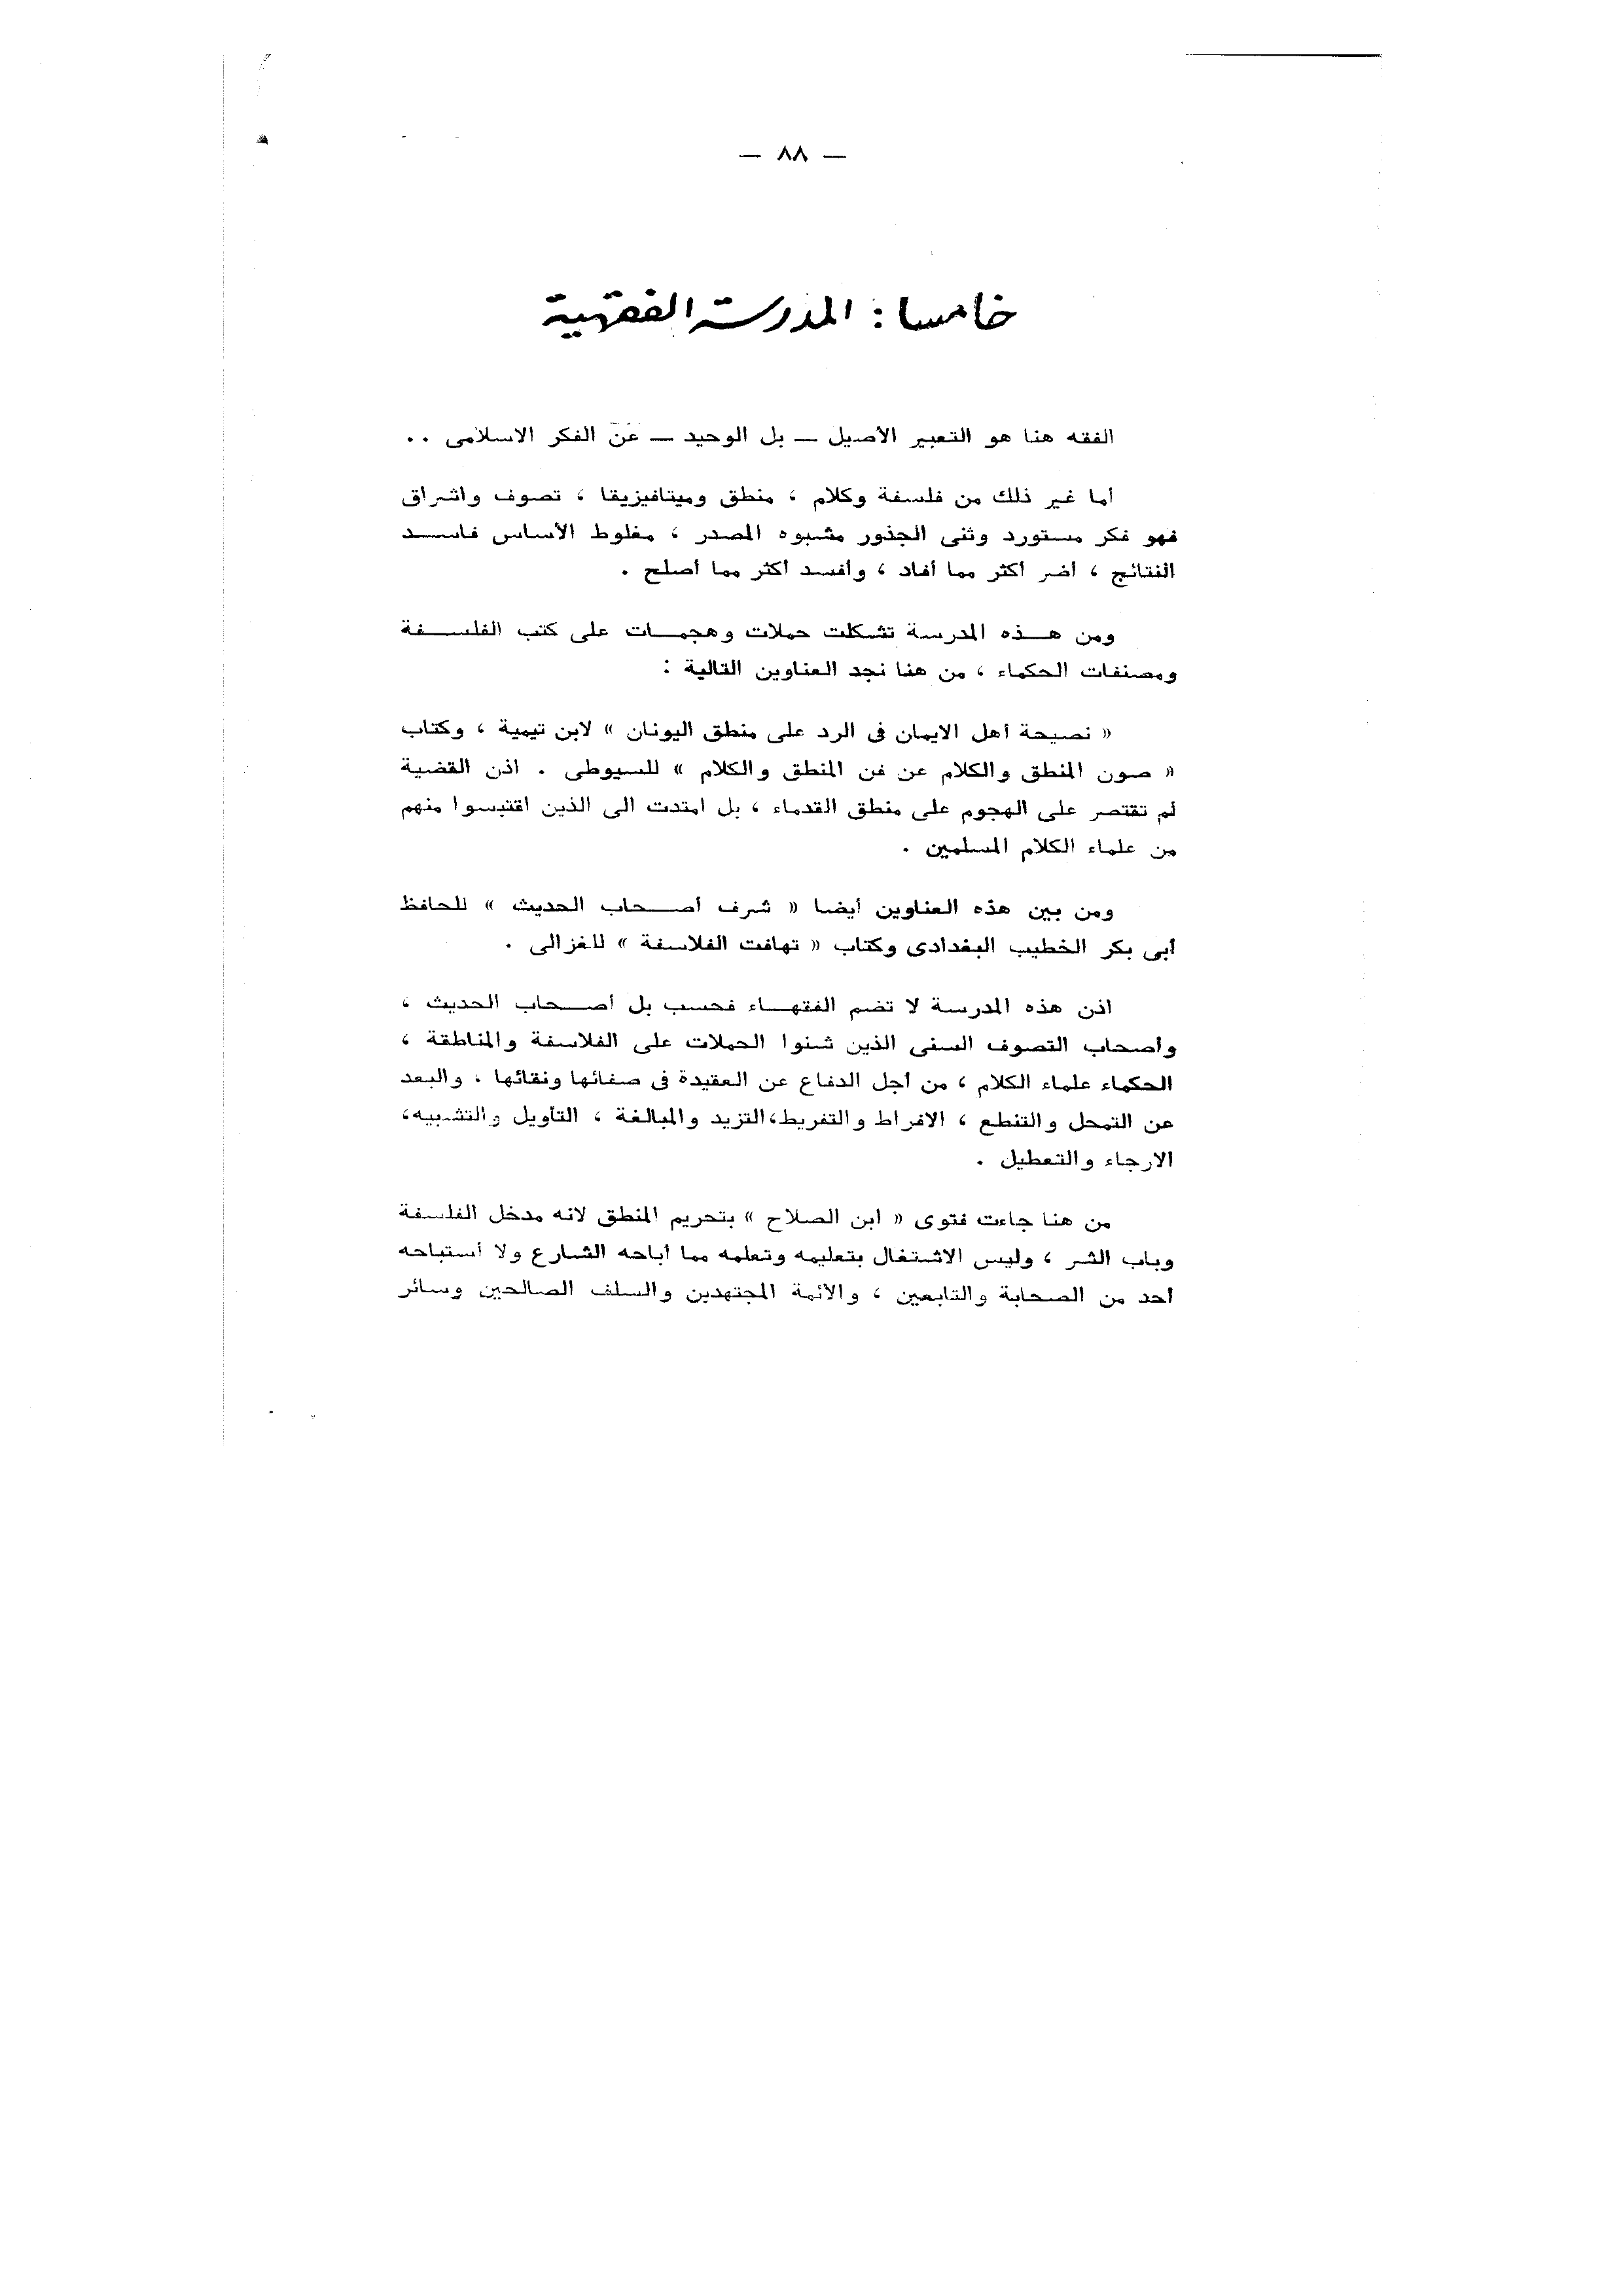 — ٨٨ —
خامسا : المدرسة الفقهية
الفقه هنا هو التعبير الأصيل — بل الوحيد — عن الفكر الاسلامى ..
أما غير ذلك من فلسفة وكلام ، منطق وميتافيزيقا ، تصوف واشراق
فهو فكر مستورد وثنى الجذور مشبوه المصدر ، مغلوط الأساس فاسد
النتائج ، أضر أكثر مما أفاد ، وأفسد أكثر مما أصلح .
ومن هذه المدرسة تشكلت حملات وهجمات على كتب الفلسفة
ومصنفات الحكماء ، من هنا نجد العناوين التالية :
« نصيحة أهل الايمان فى الرد على منطق اليونان » لابن تيمية ، وكتاب
« صون المنطق والكلام عن فن المنطق والكلام » للسيوطى . اذن القضية
لم تقتصر على الهجوم على منطق القدماء ، بل امتدت الى الذين اقتبسوا منهم
من علماء الكلام المسلمين .
ومن بين هذه العناوين أيضا « شرف أصحاب الحديث » للحافظ
أبى بكر الخطيب البغدادى وكتاب « تهافت الفلاسفة » للغزالى .
اذن هذه المدرسة لا تضم الفقهاء فحسب بل أصحاب الحديث ،
وأصحاب التصوف السنى الذين شنوا الحملات على الفلاسفة والمناطقة ،
الحكماء علماء الكلام ، من أجل الدفاع عن العقيدة فى صفائها ونقائها ، والبعد
عن التمحل والتنطع ، الافراط والتفريط، التزيد والمبالغة ، التأويل والتشبيه،
الارجاء والتعطيل .
من هنا جاءت فتوى « ابن الصلاح » بتحريم المنطق لانه مدخل الفلسفة
وباب الشر ، وليس الاشتغال بتعليمه وتعلمه مما أباحه الشارع ولا أستباحه
أحد من الصحابة والتابعين ، والأئمة المجتهدين والسلف الصالحين وسائر